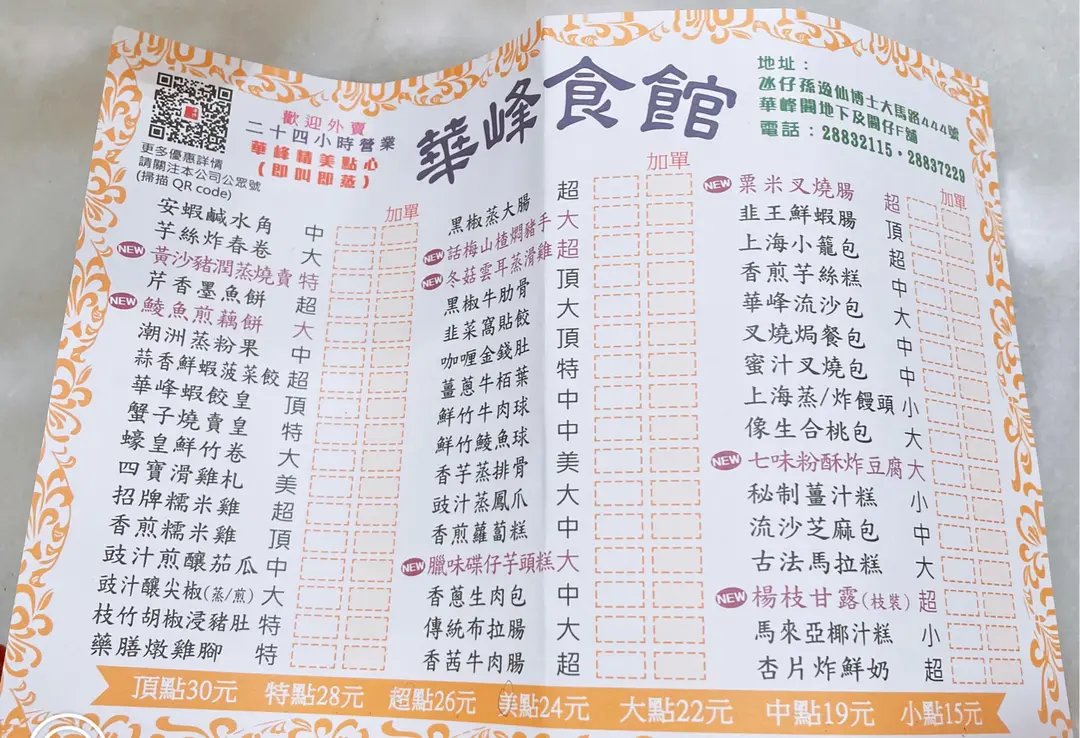 華峰食館
地址：
氹仔孫逸仙博士大馬路444號
華峰閣地下及閣仔F舖
電話：28832115・28837229
歡迎外賣
二十四小時營業
華峰精美點心
(即叫即蒸)
更多優惠詳情
請關注本公司公眾號
(掃描 QR code)
加單
安蝦鹹水角 中
芋絲炸春卷 大
NEW 黃沙豬潤蒸燒賣 特
芹香墨魚餅 超
NEW 鯪魚煎藕餅 大
潮洲蒸粉果 中
蒜香鮮蝦菠菜餃 超
華峰蝦餃皇 頂
蟹子燒賣皇 特
蠔皇鮮竹卷 大
四寶滑雞札 美
招牌糯米雞 超
香煎糯米雞 頂
豉汁煎釀茄瓜 中
豉汁釀尖椒(蒸/煎) 大
枝竹胡椒浸豬肚 特
藥膳燉雞腳 特
加單
黑椒蒸大腸 超
NEW 話梅山楂燜豬手 大
NEW 冬菇雲耳蒸滑雞 超
黑椒牛肋骨 頂
韭菜窩貼餃 大
咖喱金錢肚 頂
薑蔥牛栢葉 特
鮮竹牛肉球 中
鮮竹鯪魚球 中
香芋蒸排骨 美
豉汁蒸鳳爪 大
香煎蘿蔔糕 中
NEW 臘味碟仔芋頭糕 大
香蔥生肉包 中
傳統布拉腸 大
香茜牛肉腸 超
加單
NEW 粟米叉燒腸 超
韭王鮮蝦腸 頂
上海小籠包 超
香煎芋絲糕 中
華峰流沙包 大
叉燒焗餐包 中
蜜汁叉燒包 中
上海蒸/炸饅頭 小
像生合桃包 大
NEW 七味粉酥炸豆腐 大
秘制薑汁糕 小
流沙芝麻包 中
古法馬拉糕 大
NEW 楊枝甘露(枝裝) 超
馬來亞椰汁糕 小
杏片炸鮮奶 超
頂點30元 特點28元 超點26元 美點24元 大點22元 中點19元 小點15元